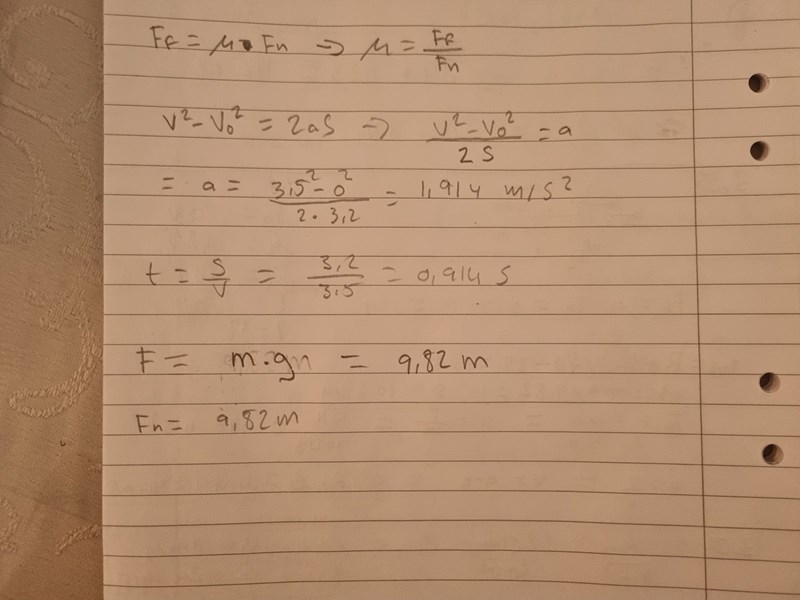 Ff = μ • Fn → μ = Ff/Fn
V² - V₀² = 2aS → (V² - V₀²)/(2S) = a
= a = (3,5² - 0²)/(2 · 3,2) = 1,914 m/s²
t = S/V = 3,2/3,5 = 0,914 s
F = m · gn = 9,82 m
Fn = 9,82 m